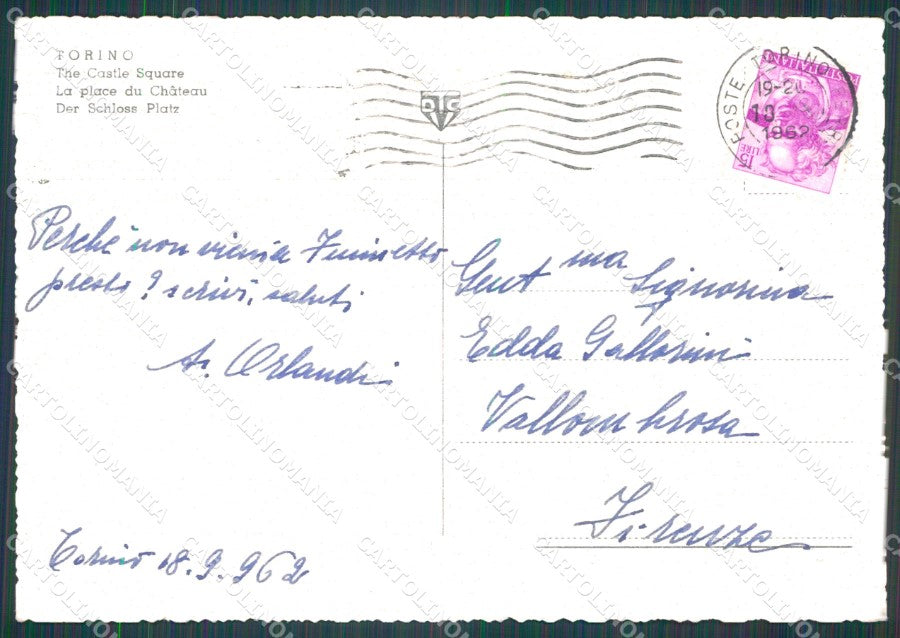 TORINO
The Castle Square
La place du Château
Der Schloss Platz
DTC
POSTE TORINO
19-2
1962
POSTE ITALIANE
15
LIRE
Perché non vieni a
presto? scrivi, saluti
A. Orlandi
Torino 18.9.962
Gent ma Signorina
Edda Gallorini
Vallombrosa
Firenze
CARTOLINOMANIA